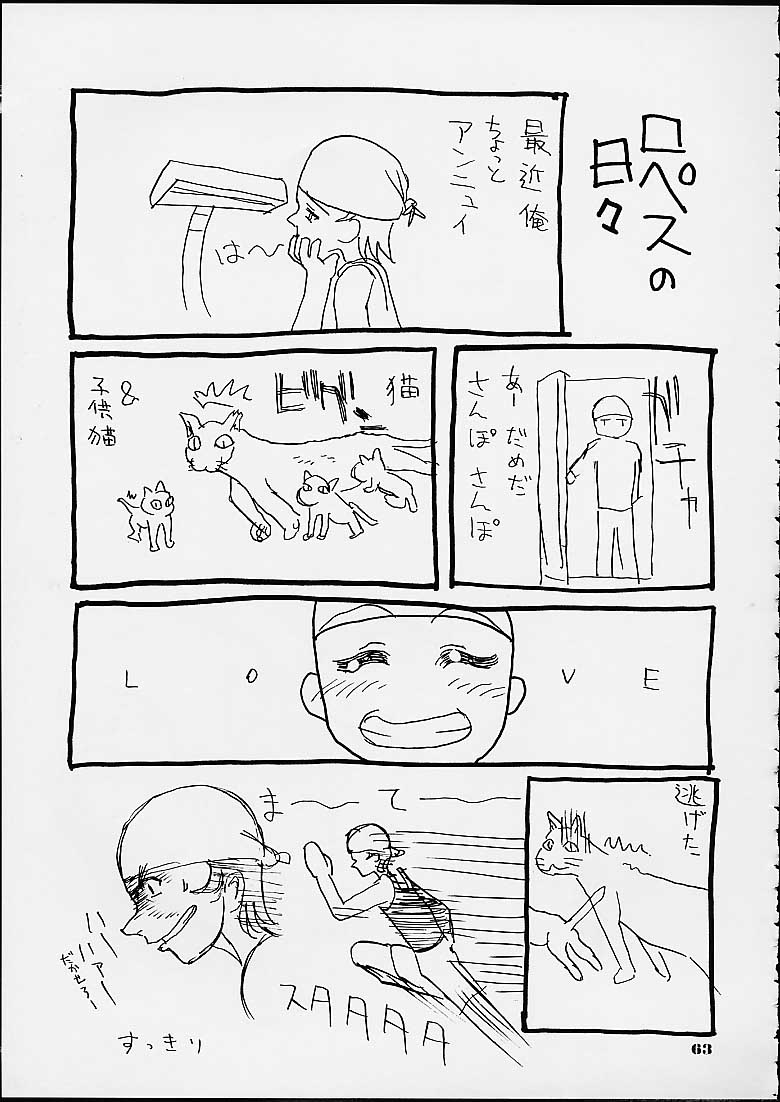 ロペスの
日々
最近俺
ちょっと
アンニュイ
は〜
ガチャ
あーだめだ
さんぽさんぽ
猫
ビグ!
&
子供猫
L O V E
逃げた
まーてー
スタタタタ
ハハァー
だかせろー
すっきり
63